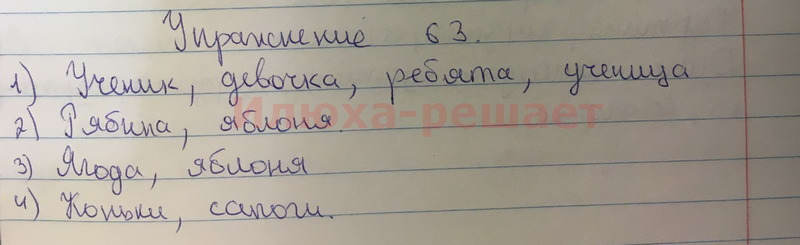 Упражнение 63.
1) Ученик, девочка, ребята, ученица
Илюха-решает
2) Рябина, яблоня.
3) Ягода, яблоня
4) Коньки, сапоги.